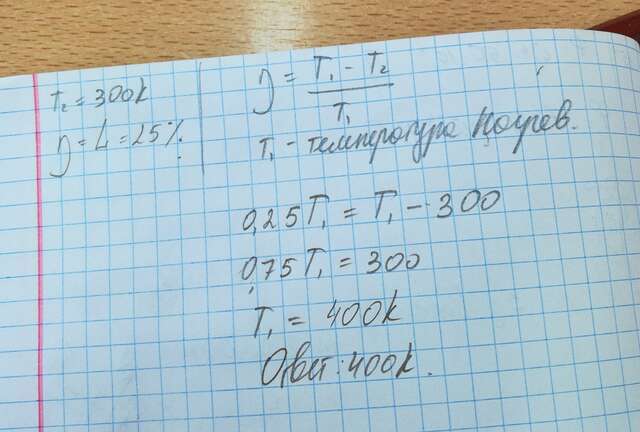 T₂ = 300k
η = L = 25%
η = (T₁ - T₂) / T₁
T₁ - температура нагрев.
0,25T₁ = T₁ - 300
0,75T₁ = 300
T₁ = 400k
Ответ: 400k.